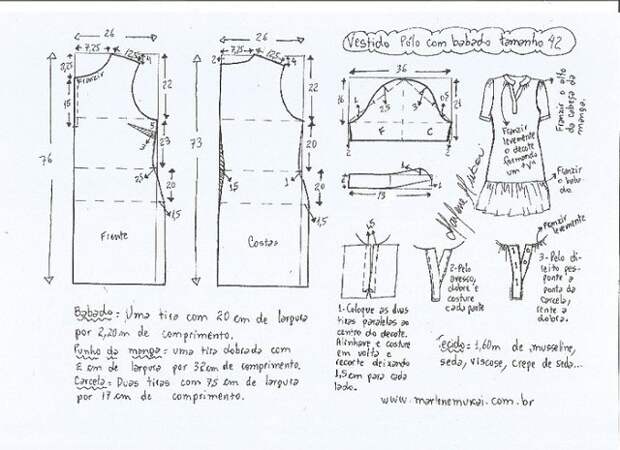 Vestido Pólo com babado tamanho 42
26
7,25
12,5
4
22
Franzir
15
76
23
3
20
1,5
Frente
26
7,25
12,5
4
2
22
73
20
1,5
1
20
1,5
Costas
36
16
F
C
2
2
2
13
Franzir o alto
da cabeça da
manga.
Franzir
levemente
o decote
formando
um "V"
Franzir
o baba-
do.
Marlene Mukai
1,5
Franzir
levemente
1- Coloque as duas
tiras paralelas ao
centro do decote.
Alinhave e costure
em volta e
recorte deixando
1,5 cm para cada
lado.
2- Pelo
avesso,
dobre e
costure
cada parte
3- Pelo di-
reito pes-
ponte a
ponta da
carcela,
rente a
dobra.
Babado: Uma tira com 20 cm de largura
por 2,20 m de comprimento.
Punho da manga: uma tira dobrada com
2 cm de largura por 32 cm de comprimento.
Carcela: Duas tiras com 7,5 cm de largura
por 17 cm de comprimento.
Tecido: 1,60m de musseline,
seda, viscose, crepe de seda...
www.marlenemukai.com.br